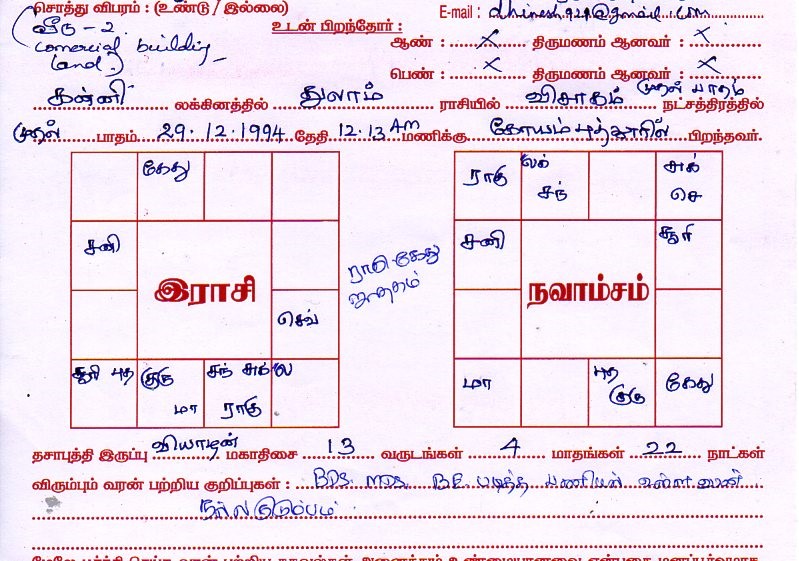 சொத்து விபரம் : (உண்டு / இல்லை)
E-mail : dhinesh929@gmail.com
வீடு - 2
உடன் பிறந்தோர் :
comercial building
land.)
ஆண் : X திருமணம் ஆனவர் : X
பெண் : X திருமணம் ஆனவர் : X
முதல் பாதம்
கன்னி லக்கினத்தில் துலாம் ராசியில் விசாகம் நட்சத்திரத்தில்
முதல் பாதம் 29.12.1994 தேதி 12.13 AM மணிக்கு கோயம்புத்தூரில் பிறந்தவர்.
கேது
சனி
இராசி
செவ்
சூரி புத
குரு
மா
சந் சுக்
ராகு
ல
ராகு கேது
ஜாதகம்
ராகு
லக்
சந்
சுக்
செ
சனி
சூரி
நவாம்சம்
மா
புத
குரு
கேது
தசாபுத்தி இருப்பு வியாழன் மகாதிசை 13 வருடங்கள் 4 மாதங்கள் 22 நாட்கள்
விரும்பும் வரன் பற்றிய குறிப்புகள் : BDS. MDS. B.E. படித்த பணியில் உள்ள
நல்ல குடும்பம்